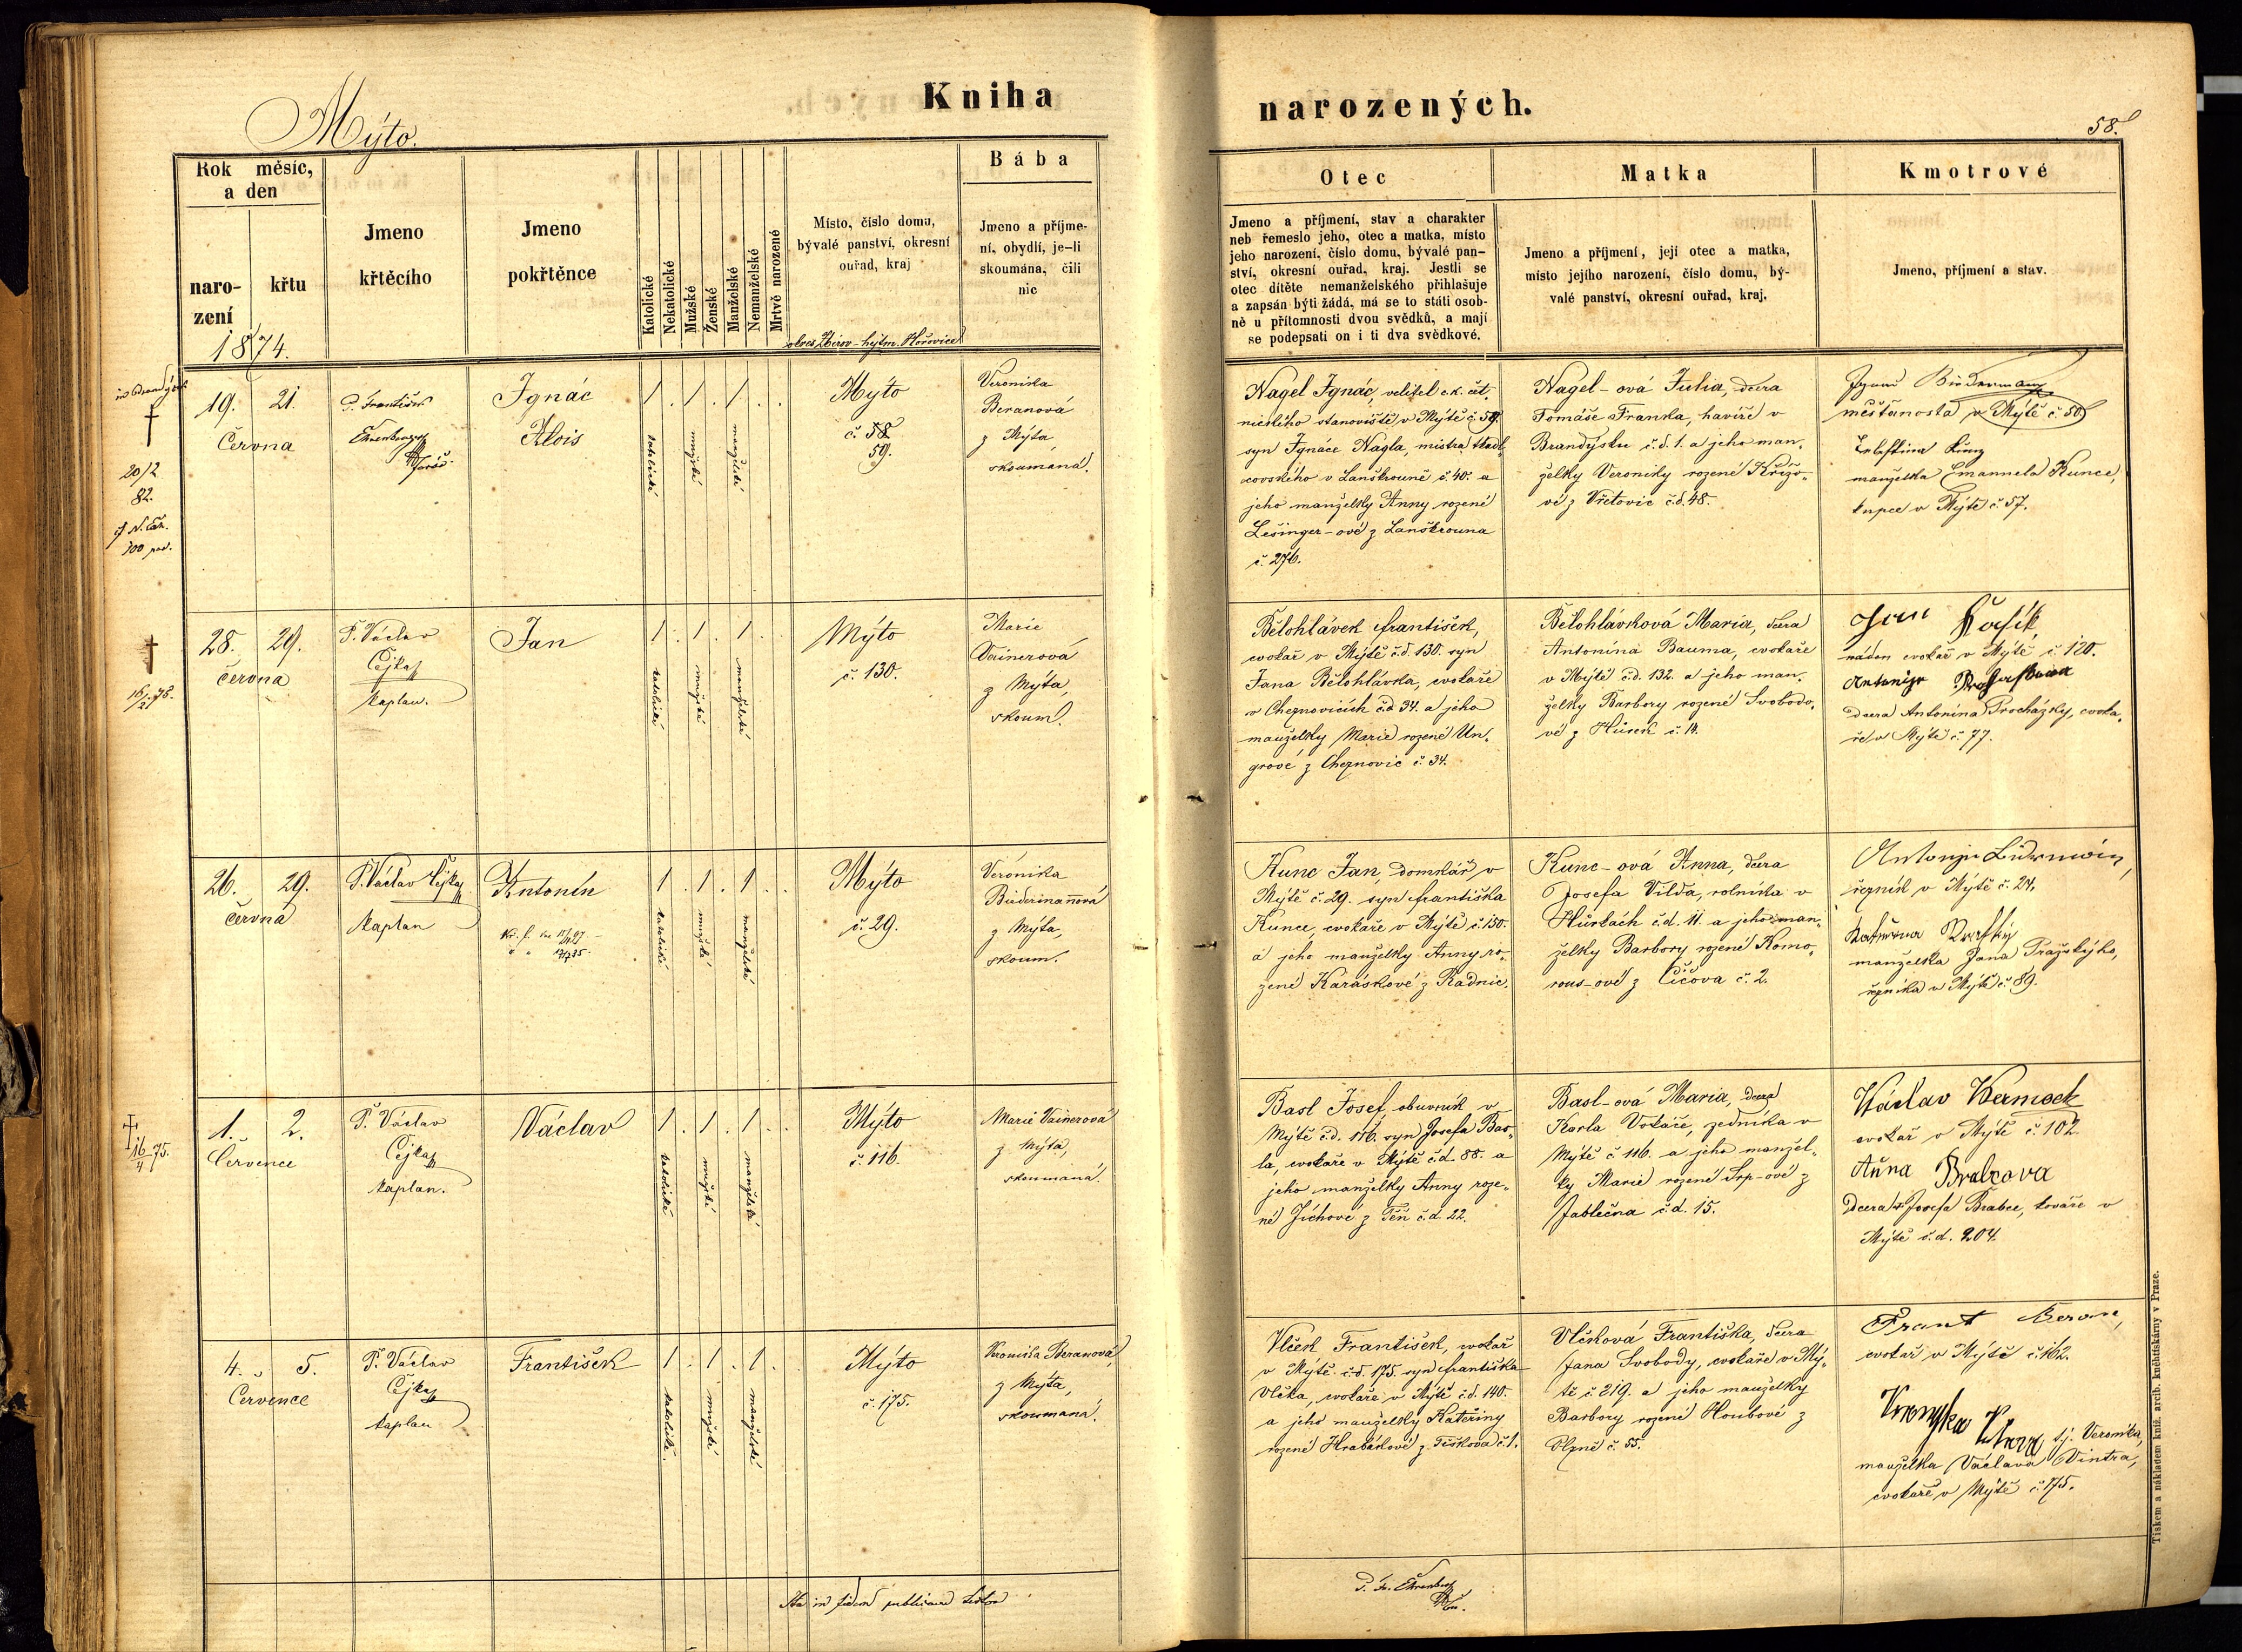 Mýto.
Kniha
narozených.
58.
Rok měsíc,
a den
naro-
zení
křtu
1874.
Jmeno
křtěcího
Jmeno
pokřtěnce
Katolické
Nekatolické
Mužské
Ženské
Manželské
Nemanželské
Mrtvě narozené
Místo, číslo domu,
bývalé panství, okresní
ouřad, kraj
okres Zbirov - hejtm. Hořovice
Bába
Jmeno a příjme-
ní, obydlí, je-li
skoumána, čili
nic
Otec
Jmeno a příjmení, stav a charakter
neb řemeslo jeho, otec a matka, místo
jeho narození, číslo domu, bývalé pan-
ství, okresní ouřad, kraj. Jestli se
otec dítěte nemanželského přihlašuje
a zapsán býti žádá, má se to státi osob-
ně u přítomnosti dvou svědků, a mají
se podepsati on i ti dva svědkové.
Matka
Jmeno a příjmení, její otec a matka,
místo jejího narození, číslo domu, bý-
valé panství, okresní ouřad, kraj.
Kmotrové
Jmeno, příjmení a stav.
†
20/2
82.
19. 21.
Června
P. František
Ehrenberger
Farář.
Ignác
Alois
1 . 1 . 1 . .
katolické
mužské
manželské
Mýto
č. 58
59.
Veronika
Beranová
z Mýta,
skoumaná.
Nagel Ignác, velitel c.k. čet-
nického stanoviště v Mýtě č. 59.
syn Ignáce Nagla, mistra tkadl-
covského v Lanškrouně č. 40. a
jeho manželky Anny rozené
Lešinger-ové z Lanškrouna
č. 276.
Nagel-ová Julia, dcera
Tomáše Franka, havíře v
Brandýsku č.d. 1. a jeho man-
želky Veroniky rozené Křížo-
vé z Vřetovic č.d. 48.
Ignac Biedermann
měšťanosta v Mýtě č. 50
manželka Emanuela Kunce,
kupce v Mýtě č. 57.
†
16/2 78.
28. 29.
června
P. Václav
Čejka
kaplan.
Jan
1 . 1 . 1 . .
katolické
mužské
manželské
Mýto
č. 130.
Marie
Vainerová
z Mýta,
skoum.
Bělohlávek František,
cvokař v Mýtě č.d. 130. syn
Jana Bělohlávka, cvokaře
v Cheznovicích č.d. 34. a jeho
manželky Marie rozené Un-
grové z Cheznovic č. 34.
Bělohlávková Maria, dcera
Antonína Bauma, cvokaře
v Mýtě č.d. 132. a jeho man-
želky Barbory rozené Svobodo-
vé z Hůrek č. 14.
Jan
náden cvokař v Mýtě č 120.
dcera Antonína Procházky, cvoka-
ře v Mýtě č. 77.
26. 29.
června
P. Václav Čejka
kaplan
Antonín
1 . 1 . 1 . .
katolické
mužské
manželské
Mýto
č. 29.
Veronika
Biedermannová
z Mýta,
skoum.
Kunc Jan, domkář v
Mýtě č. 29. syn Františka
Kunce, cvokaře v Mýtě č. 150.
a jeho manželky Anny ro-
zené Karáskové z Radnic.
Kunc-ová Anna, dcera
Josefa Vilda, rolníka v
Hůrkách č.d. 11. a jeho man-
želky Barbory rozené Komo-
rous-ové z Čičova č. 2.
řezník v Mýtě č. 24,
manželka Jana Pražskýho,
řezníka v Mýtě č. 89.
†
16/4 75.
1. 2.
Července
P. Václav
Čejka
kaplan.
Václav
1 . 1 . 1 . .
katolické
mužské
manželské
Mýto
č. 116.
Marie Vainerová
z Mýta,
skoumaná.
Basl Josef, obuvník v
Mýtě č.d. 116. syn Josefa Bas-
la, cvokaře v Mýtě č.d. 88. a
jeho manželky Anny roze-
né Jíchové z Těň č.d. 22.
Basl-ová Maria, dcera
Karla Votáče, zedníka v
Mýtě č 116. a jeho manžel-
ky Marie rozené Srp-ové z
Jablečna č.d. 15.
Wáclav Kerneck
cvokař v Mýtě č. 102
Anna Brabcova
dcera Josefa Brabce, kováře v
Mýtě č.d. 204.
4. 5.
Července
P. Václav
Čejka
kaplan
František
1 . 1 . 1 .
katolické
mužské
manželské
Mýto
č. 175.
Veronika Beranová,
z Mýta,
skoumaná.
Vlček František, cvokař
v Mýtě č.d. 175. syn Františka
Vlčka, cvokaře v Mýtě č.d. 140.
a jeho manželky Kateřiny
rozené Hrabákové z Těškova č. 1.
Vlčková Františka, dcera
Jana Svobody, cvokaře v Mý-
tě č. 219. a jeho manželky
Barbory rozené Houbové z
Plzně č. 55.
Frant Beran,
cvokař v Mýtě č. 162.
tj. Veronika,
manželka Václava Vintra,
cvokaře v Mýtě č. 175.
Ita in fidem publicam testor
P. Fr. Ehrenberger
Tiskem a nákladem kníž. arcib. knihtiskárny v Praze.